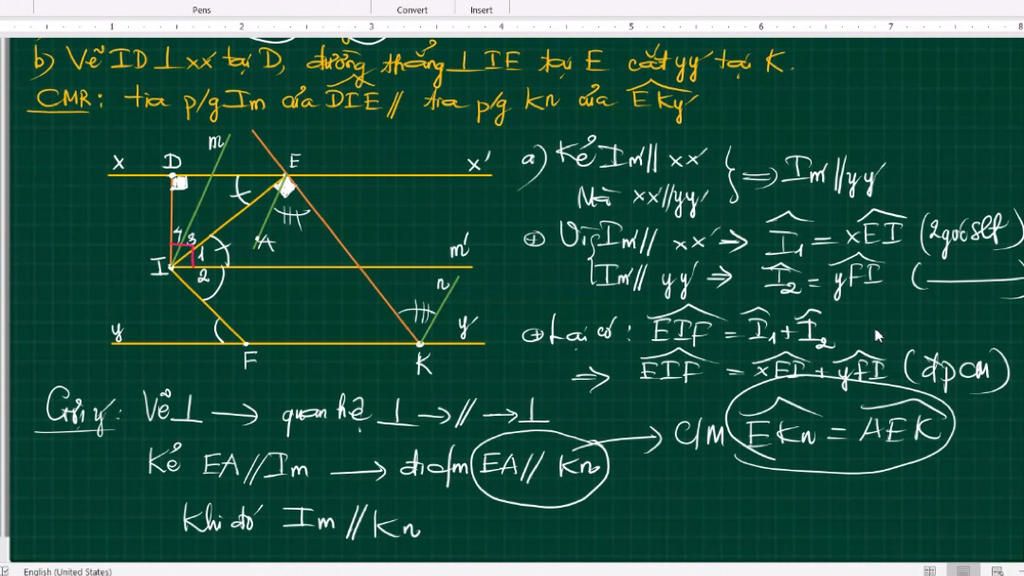 Pens Convert Insert
1 2 3 4 5 6 7 8
b) Vẽ ID ⊥ xx' tại D, đường thẳng ⊥ IE tại E cắt yy' tại K.
CMR: tia p/g Im của DIE // tia p/g Kn của EKy'
x D m E x'
A
4 3 1
I 2 m'
n
y F K y'
a) Kẻ Im' // xx'
Mà xx' // yy' } => Im' // yy'
+ Vì { Im' // xx' => I1 = xEI (2 góc slt)
Im' // yy' => I2 = yFI (
+ Lại có: EIF = I1 + I2
=> EIF = xEI + yFI (đpcm)
Gợi ý: Vẽ ⊥ → quan hệ ⊥ → // → ⊥
Kẻ EA // Im → đi c/m EA // Kn → C/M EKn = AEK
Khi đó Im // Kn
English (United States)